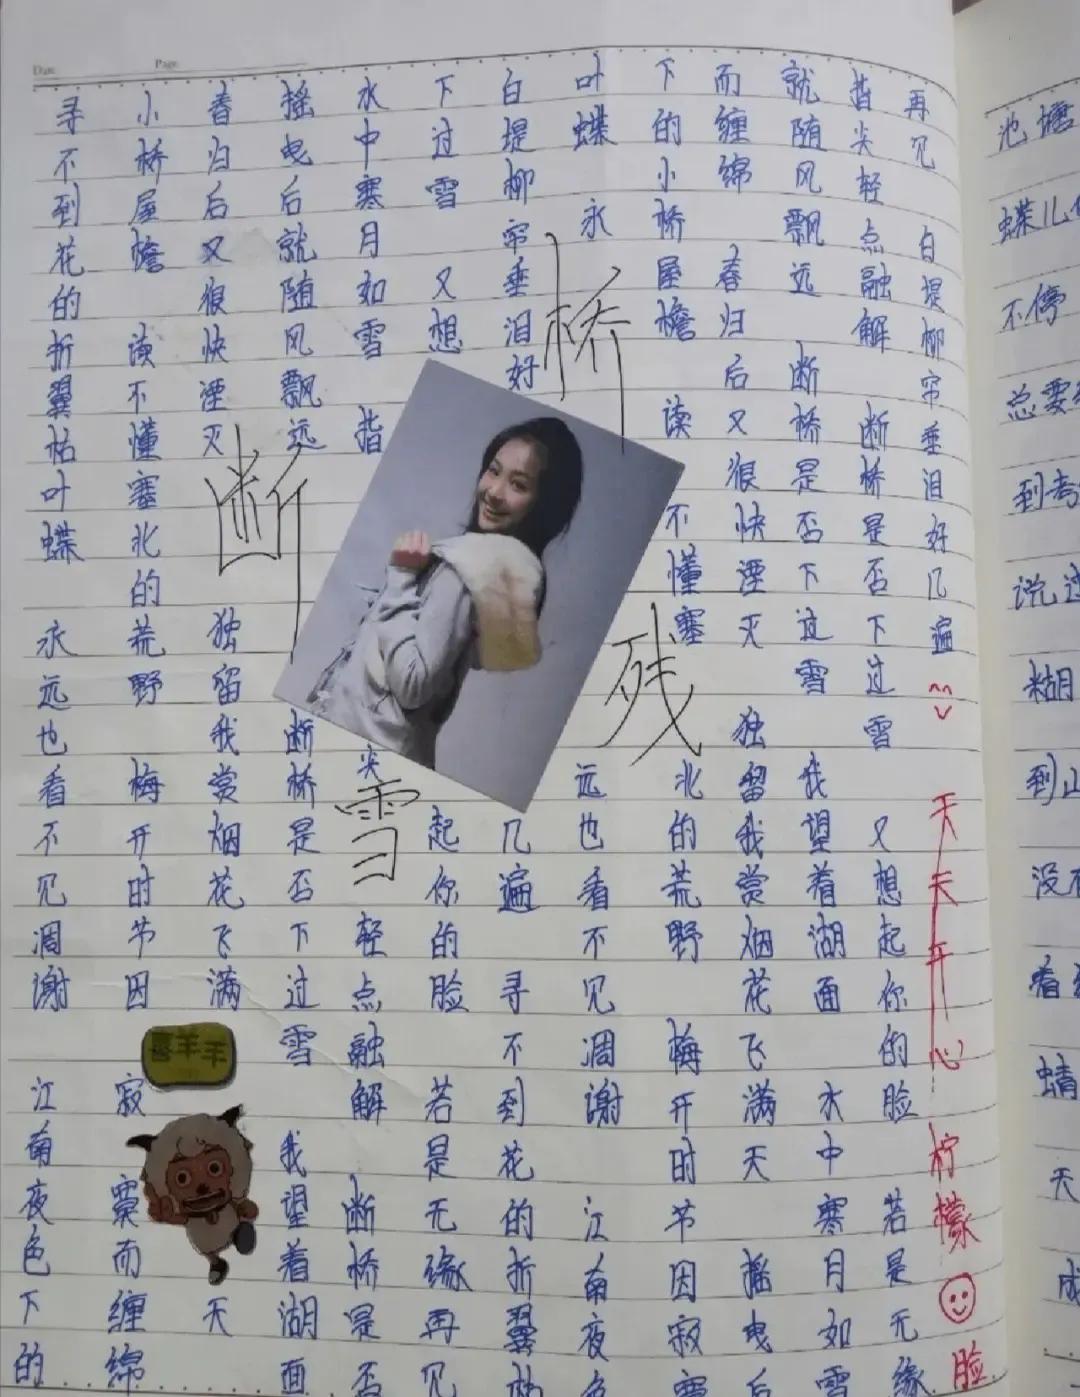 Date Page
寻不到花的折翼枯叶蝶 永远也看不见凋谢 江南夜色下的
小桥屋檐 读不懂塞北的荒野 梅开时节因 寂寞而缠绵
春归后又很快湮灭 独留我赏烟花飞满 天
摇曳后就随风飘远 断桥是否下过雪 我望着湖面
水中寒月如雪 指尖轻点融解 断桥是否
下过雪 又想起你的脸 若是无缘再见
白堤柳帘垂泪好几遍 寻不到花的折翼枯
叶蝶 永远也看不见凋谢 江南夜色
下的小桥屋檐 读不懂塞北的荒野 梅开时节因寂寞
而缠绵 春归后又很快湮灭 独留我赏烟花飞满天 摇曳后
就随风飘远 断桥是否下过雪 我望着湖面 水中寒月如雪
指尖轻点融解 断桥是否下过雪 又想起你的脸 若是无缘
再见 白堤柳帘垂泪好几遍
天天开心 柠檬 脸
断桥残雪
喜羊羊
池塘
蝶儿
不停
总要
到考
说过
糊
到山
没
看
蜻
天
成